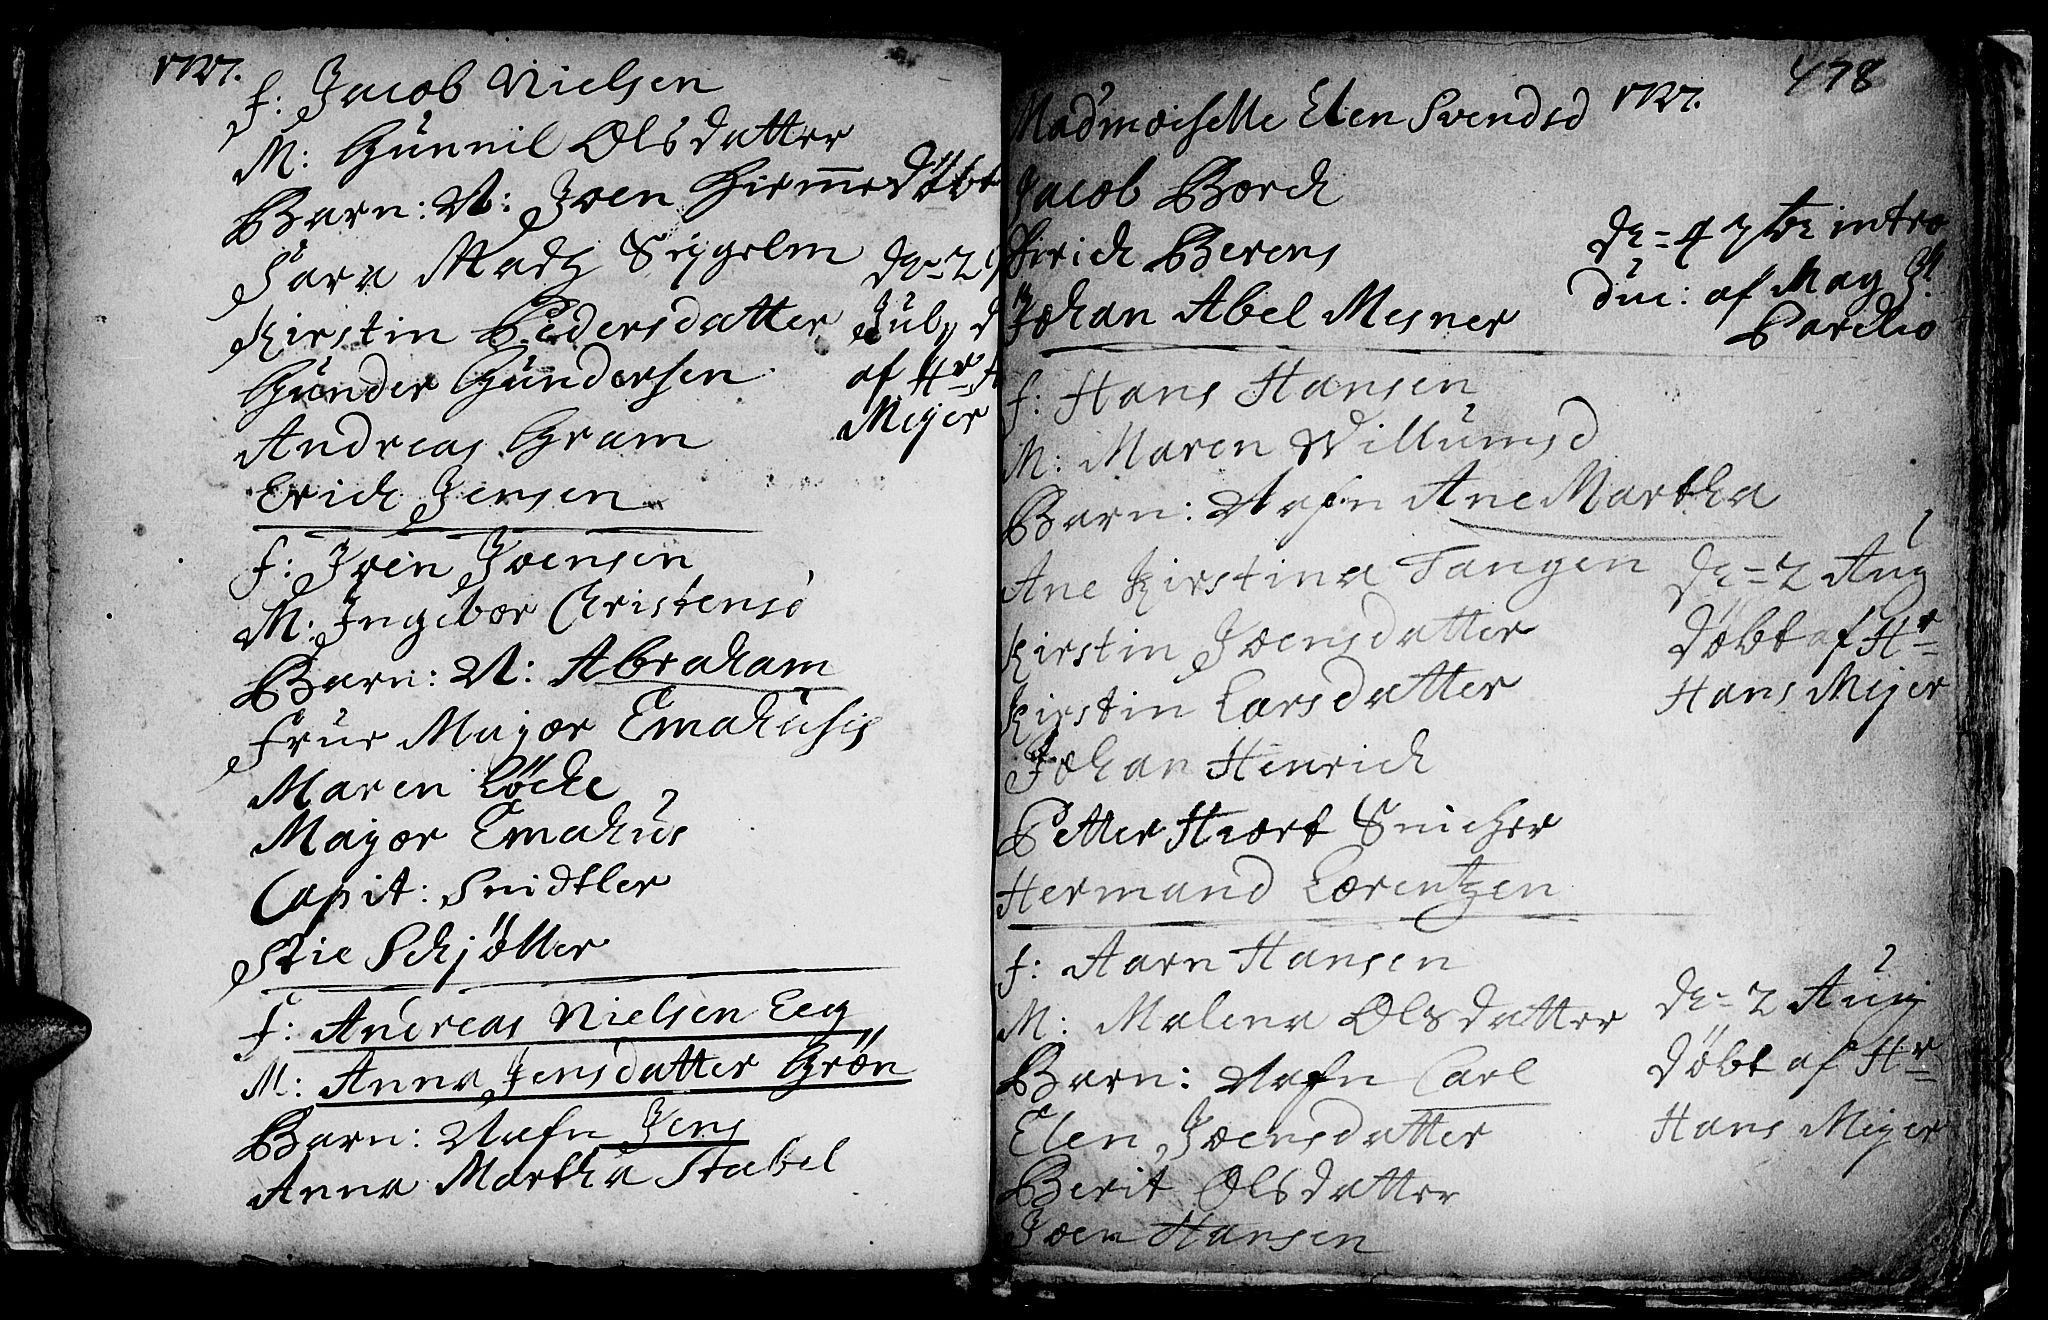 1727.
f: Jacob Nielsen
M: Gunnil Olsdatter
Barn: N: Joen hiemmedöbt
Sara Madtz Sygelm
Kirstin Pedersdatter
Gunder Gundersen
Andreas Gram
Erich Jensen
de=2
July
af Hr
Meyer
f: Joen Joensen
M: Ingebor Christensd
Barn: N: Abraham
Frue Major Emahusis
Maren Löcke
Major Emahus
Capit: Snidtler
Stie Schjötter
f: Andreas Nielsen Eeg
M: Anna Jensdatter Grön
Barn: Nafn Jens
Anna Martha Stabel
1727.
478
Madmoiselle Elen Svendsd
Jacob Borch
Hirich Berens
Johan Abel Mesner
de=4 7br intro
duc: af Mag
f: Hans Hansen
M: Maren Willumsd
Barn: Nafn Ane Martha
Ane Kirstina Tangen
Kirstin Joensdatter
Kirstin Larsdatter
Johan Henrich
Petter Hiort Snicher
Hermand Lorentzen
de=2 Aug
döbt af Hr
Hans Mejer
f: Aarn Hansen
M: Malena Olsdatter
Barn: Nafn Carl
Elen Joensdatter
Berit Olsdatter
Joen Hansen
de=2 Aug
döbt af Hr
Hans Mejer